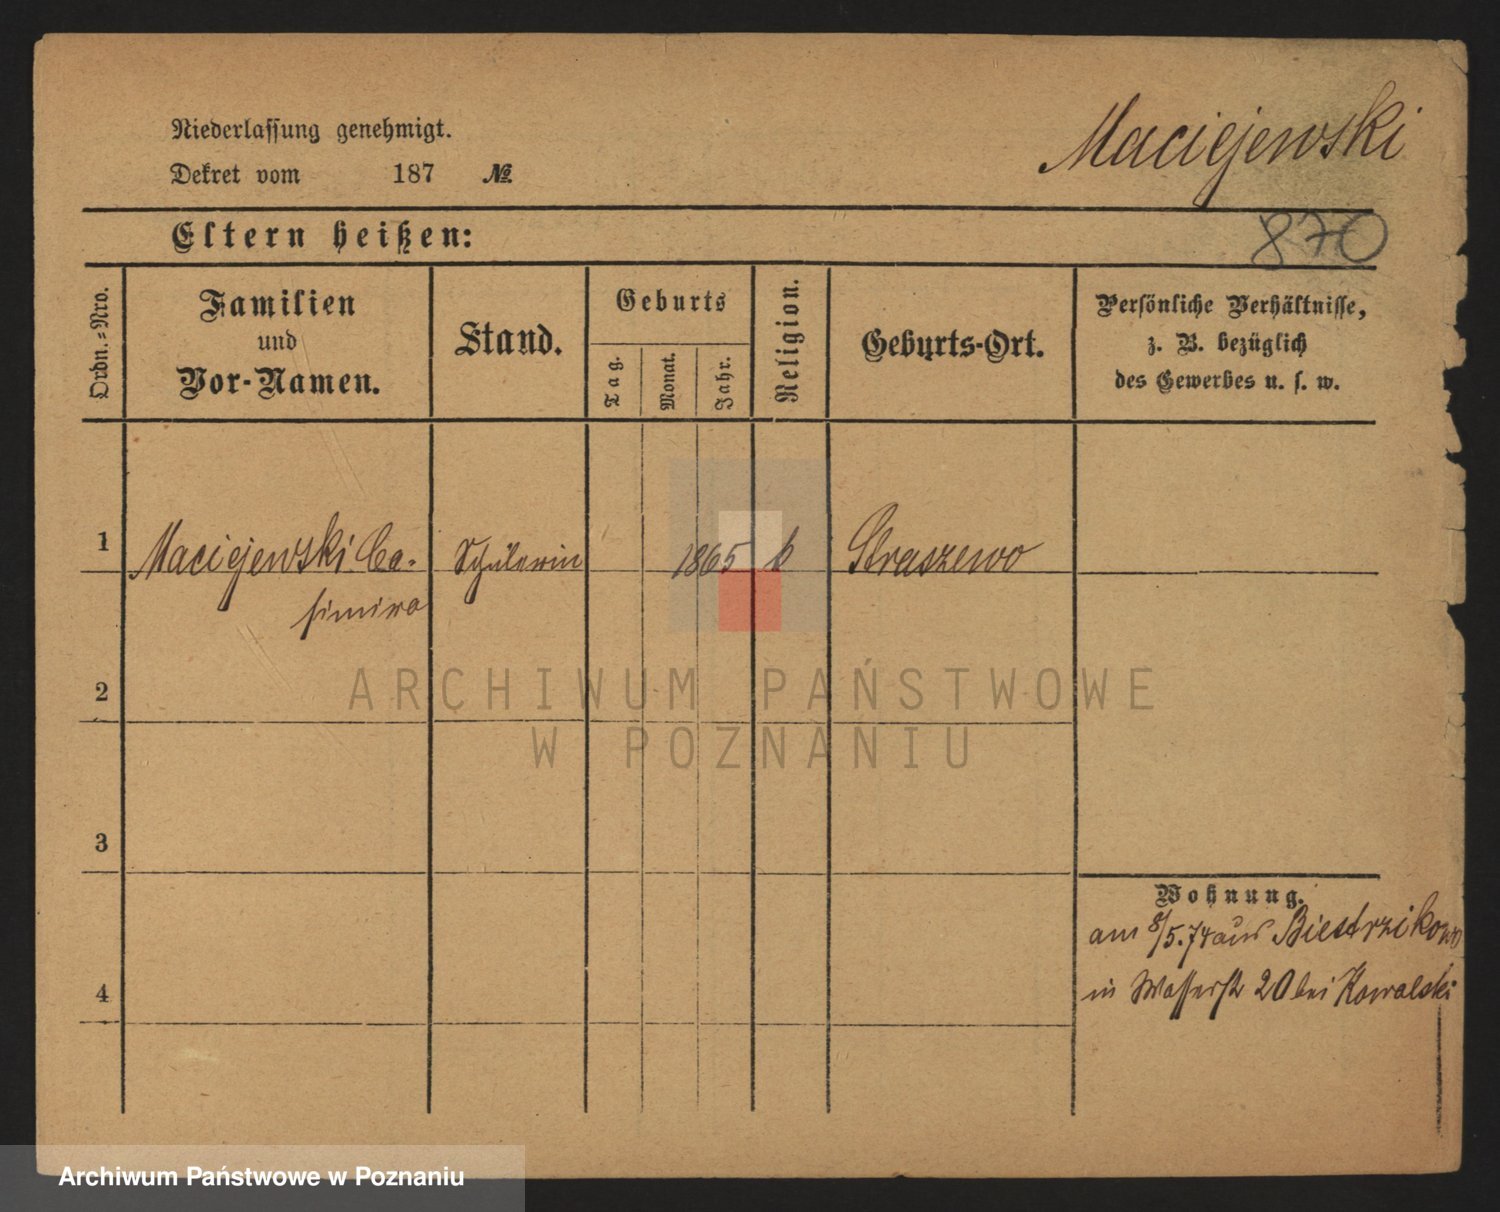 Niederlassung genehmigt.
Dekret vom 187 №
Maciejewski
870
Eltern heißen:
Ordn.-Nro.
Familien
und
Vor-Namen.
Stand.
Geburts
Tag.
Monat.
Jahr.
Religion.
Geburts-Ort.
Persönliche Verhältnisse,
z. B. bezüglich
des Gewerbes u. s. w.
1 Maciejewski Ca- Schülerin 1865 k Straszewo
simira
2
3
4
Wohnung.
am 8/5.74 aus Biestrzikowo
in Wasserstr 20 bei Kowalski
ARCHIWUM PAŃSTWOWE
W POZNANIU
Archiwum Państwowe w Poznaniu